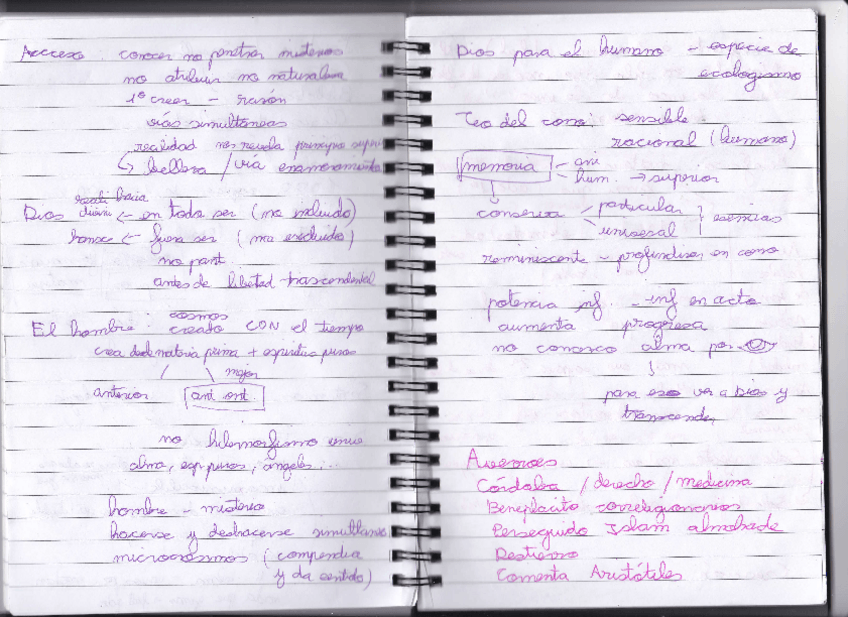 Acceso: conocer no penetrar misterios
no atribuir no naturaleza
1º creer - razón
vías simultáneas
realidad nos revela principio
↳ belleza / vía enamoramiento
Dios ← en todo ser (no incluido)
← fuera ser (no excluido)
no part.
antes de libertad trascendental
cosmos
El hombre: creado CON el tiempo
crea desde materia prima + espíritus puros
mejor
anterior
no hilemorfismo
alma, esp. puros, ángeles...
hombre - misterio
hacerse y deshacerse simultáneo
microcosmos (compendia
y da sentido)
Dios para el humano - especie de
ecologismo
Teo del cono: sensible
racional (humano)
memoria - ani
hum. → superior
conserva - particular
universal } esencias
reminiscente - profundizar en cono
potencia inf. - inf en acto
aumenta progresa
no conozco alma por
para eso ver a Dios y
transcender
Averroes
Córdoba / derecho / medicina
Beneplácito correligionarios
Perseguido Islam almohade
Destierro
Comenta Aristóteles